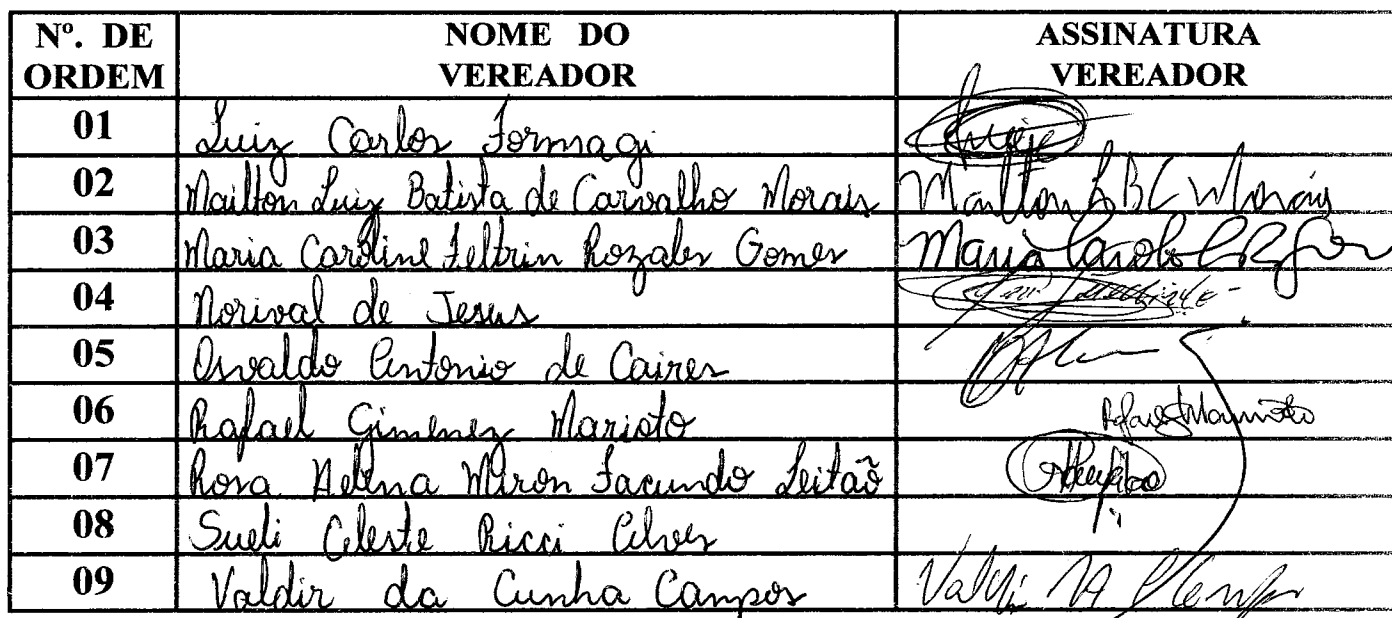 Nº. DE ORDEM NOME DO VEREADOR ASSINATURA VEREADOR
01 Luiz Carlos Formagi
02 Mailton Luiz Batista de Carvalho Morais Mailton L B C Morais
03 Maria Caroline Feltrin Rozales Gomes Maria
04 Norival de Jesus
05 Osvaldo Antonio de Caires
06 Rafael Gimenez Marioto
07 Rosa Helena Miron Facundo Leitão
08 Sueli Celeste Ricci Alves
09 Valdir da Cunha Campos